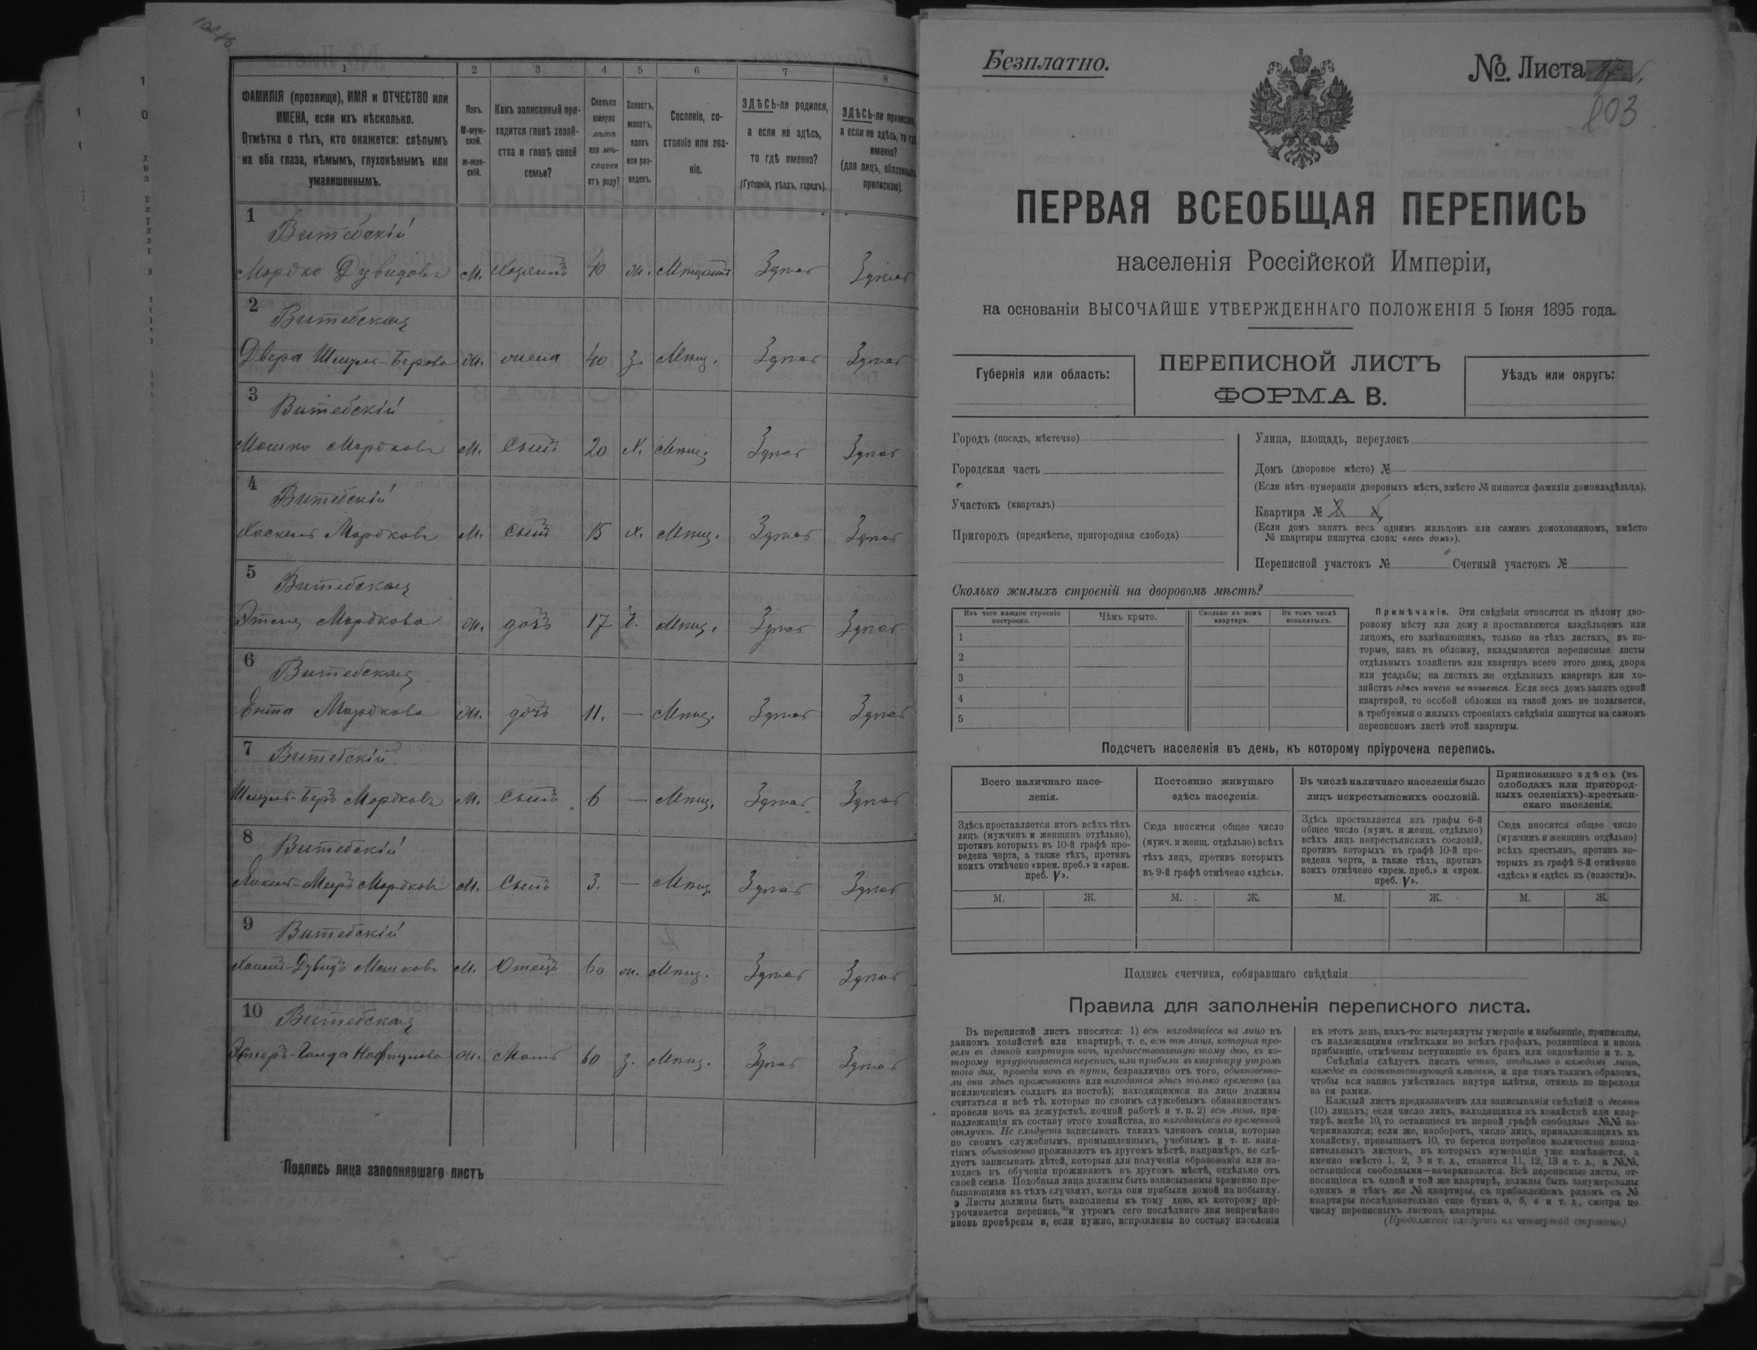 1
2
3
4
5
6
7
8
ФАМИЛІЯ (прозвище), ИМЯ и ОТЧЕСТВО или
ИМЕНА, если ихъ нѣсколько.
Отмѣтка о тѣхъ, кто окажется: слѣпымъ
на оба глаза, нѣмымъ, глухонѣмымъ или
умалишеннымъ.
Полъ.
М-муж-
ской.
ж-жен-
скій.
Какъ записанный при-
ходится главѣ хозяй-
ства и главѣ своей
семьи?
Сколько
минуло
лѣтъ
или мѣ-
сяцевъ
отъ роду?
Холостъ,
женатъ,
вдовъ
или раз-
веденъ.
Сословіе, со-
стояніе или зва-
ніе.
ЗДѢСЬ-ли родился,
а если не здѣсь,
то гдѣ именно?
(Губернія, уѣздъ, городъ).
ЗДѢСЬ-ли приписанъ,
а если не здѣсь, то гдѣ
именно?
(для лицъ, обязанныхъ
припискою).
1
Витебскій
Мордко Дувидовъ м. хозяинъ 40 ж. Мѣщанинъ
2
Витебская
Двера Шмуль-Берова ж. жена 40 з. Мѣщ.
3
Витебскій
Мошко Мордковъ м. сынъ 20 х. Мѣщ.
4
Витебскій
Мордковъ м. сынъ 15 х. Мѣщ.
5
Витебская
Мордкова ж. дочь 17 Мѣщ.
6
Витебская
Мордкова ж. дочь 11. — Мѣщ.
7
Витебскій
Шмуль-Беръ Мордковъ м. сынъ 6 — Мѣщ.
8
Витебскій
Мордковъ м. сынъ 3. — Мѣщ.
9
Витебскій
Дувидъ Мошковъ м. Отецъ 60 ж. Мѣщ.
10
Витебская
ж. Мать 60 з. Мѣщ.
Подпись лица заполнявшаго листъ
Безплатно.
№. Листа
803
ПЕРВАЯ ВСЕОБЩАЯ ПЕРЕПИСЬ
населенія Россійской Имперіи,
на основаніи ВЫСОЧАЙШЕ УТВЕРЖДЕННАГО ПОЛОЖЕНІЯ 5 Іюня 1895 года.
Губернія или область:
ПЕРЕПИСНОЙ ЛИСТЪ
ФОРМА В.
Уѣздъ или округъ:
Городъ (посадъ, мѣстечко)
Городская часть
Участокъ (кварталъ)
Пригородъ (предмѣстье, пригородная слобода)
Улица, площадь, переулокъ
Домъ (дворовое мѣсто) №
(Если нѣтъ нумераціи дворовыхъ мѣстъ, вмѣсто № пишется фамилія домовладѣльца).
Квартира №
(Если домъ занятъ весь однимъ жильцомъ или самимъ домохозяиномъ, вмѣсто
№ квартиры пишутся слова: «весь домъ»).
Переписной участокъ № Счетный участокъ №
Сколько жилыхъ строеній на дворовомъ мѣстѣ?
Изъ чего каждое строеніе
построено.
Чѣмъ крыто.
Сколько въ немъ
квартиръ.
Въ томъ числѣ
незанятыхъ.
1
2
3
4
5
Примѣчаніе. Эти свѣдѣнія относятся къ цѣлому дво-
ровому мѣсту или дому и проставляются владѣльцемъ или
лицомъ, его замѣняющимъ, только на тѣхъ листахъ, въ ко-
торые, какъ въ обложку, вкладываются переписные листы
отдѣльныхъ хозяйствъ или квартиръ всего этого дома, двора
или усадьбы; на листахъ же отдѣльныхъ квартиръ или хо-
зяйствъ здѣсь ничего не пишется. Если весь домъ занятъ одной
квартирой, то особой обложки на такой домъ не полагается,
а требуемыя о жилыхъ строеніяхъ свѣдѣнія пишутся на самомъ
переписномъ листѣ этой квартиры.
Подсчетъ населенія въ день, къ которому пріурочена перепись.
Всего наличнаго насе-
ленія.
Постоянно живущаго
здѣсь населенія.
Въ числѣ наличнаго населенія было
лицъ некрестьянскихъ сословій.
Приписаннаго здѣсь (въ
слободахъ или пригород-
ныхъ селеніяхъ)-крестьян-
скаго населенія.
Здѣсь проставляется итогъ всѣхъ тѣхъ
лицъ (мужчинъ и женщинъ отдѣльно),
противъ которыхъ въ 10-й графѣ про-
ведена черта, а также тѣхъ, противъ
коихъ отмѣчено «врем. преб.» и «врем.
преб. V».
Сюда вносится общее число
(мужч. и женщ. отдѣльно) всѣхъ
тѣхъ лицъ, противъ которыхъ
въ 9-й графѣ отмѣчено «здѣсь».
Здѣсь проставляется изъ графы 6-й
общее число (мужч. и женщ. отдѣльно)
всѣхъ лицъ некрестьянскихъ сословій,
противъ которыхъ въ графѣ 10-й про-
ведена черта, а также тѣхъ, противъ
коихъ отмѣчено «врем. преб.» и «врем.
преб. V».
Сюда вносится общее число
(мужчинъ и женщинъ отдѣльно)
всѣхъ крестьянъ, противъ ко-
торыхъ въ графѣ 8-й отмѣчено
«здѣсь» и «здѣсь къ (волости)».
М. Ж. М. Ж. М. Ж. М. Ж.
Подпись счетчика, собиравшаго свѣдѣнія
Правила для заполненія переписного листа.
Въ переписной листъ вносятся: 1) всѣ находящіеся на лицо въ
данномъ хозяйствѣ или квартирѣ, т. е. всѣ тѣ лица, которыя про-
вели въ данной квартирѣ ночь, предшествовавшую тому дню, къ ко-
торому пріурочивается перепись, или прибыли въ квартиру утромъ
того дня, проведя ночь въ пути, безразлично отъ того, обыкновенно-
ли они здѣсь проживаютъ или находятся здѣсь только временно (за
исключеніемъ солдатъ на постоѣ); находящимися на лицо должны
считаться и всѣ тѣ, которые по своимъ служебнымъ обязанностямъ
провели ночь на дежурствѣ, ночной работѣ и т. п. 2) всѣ лица, при-
надлежащія къ составу этого хозяйства, но находящіяся во временной
отлучкѣ. Не слѣдуетъ записывать такихъ членовъ семьи, которые
по своимъ служебнымъ, промышленнымъ, учебнымъ и т. п. заня-
тіямъ обыкновенно проживаютъ въ другомъ мѣстѣ, напримѣръ, не слѣ-
дуетъ записывать дѣтей, которыя для полученія образованія или на-
ходясь въ обученіи проживаютъ въ другомъ мѣстѣ, отдѣльно отъ
своей семьи. Подобныя лица должны быть записываемы временно пре-
бывающими въ тѣхъ случаяхъ, когда они прибыли домой на побывку.
Листы должны быть заполнены къ тому дню, къ которому прі-
урочивается перепись, и утромъ сего послѣдняго дня непремѣнно
вновь провѣрены и, если нужно, исправлены по составу населенія
въ этотъ день, какъ-то: вычеркнуты умершіе и выбывшіе, приписаны,
съ надлежащими отмѣтками во всѣхъ графахъ, родившіеся и вновь
прибывшіе, отмѣчены вступившіе въ бракъ или овдовѣвшіе и т. д.
Свѣдѣнія слѣдуетъ писать четко, отдѣльно о каждомъ лицѣ,
каждое въ соотвѣтствующей клѣткѣ, и при томъ такимъ образомъ,
чтобы вся запись умѣстилась внутри клѣтки, отнюдь не переходя
за ея рамки.
Каждый листъ предназначенъ для записыванія свѣдѣній о десяти
(10) лицахъ; если число лицъ, находящихся въ хозяйствѣ или квар-
тирѣ, менѣе 10, то оставшіеся въ первой графѣ свободные №№ за-
черкиваются; если же, наоборотъ, число лицъ, принадлежащихъ къ
хозяйству, превышаетъ 10, то берется потребное количество допол-
нительныхъ листовъ, въ которыхъ нумерація уже измѣняется, а
именно вмѣсто 1, 2, 3 и т. д., ставится 11, 12, 13 и т. д., а №№,
оставшіеся свободными—зачеркиваются. Всѣ переписные листы, от-
носящіеся къ одной и той же квартирѣ, должны быть занумерованы
однимъ и тѣмъ же № квартиры, съ прибавленіемъ рядомъ съ №
квартиры послѣдовательно еще буквъ а, б, в и т. д., смотря по
числу переписныхъ листовъ квартиры.
(Продолженіе слѣдуетъ на четвертой страницѣ)